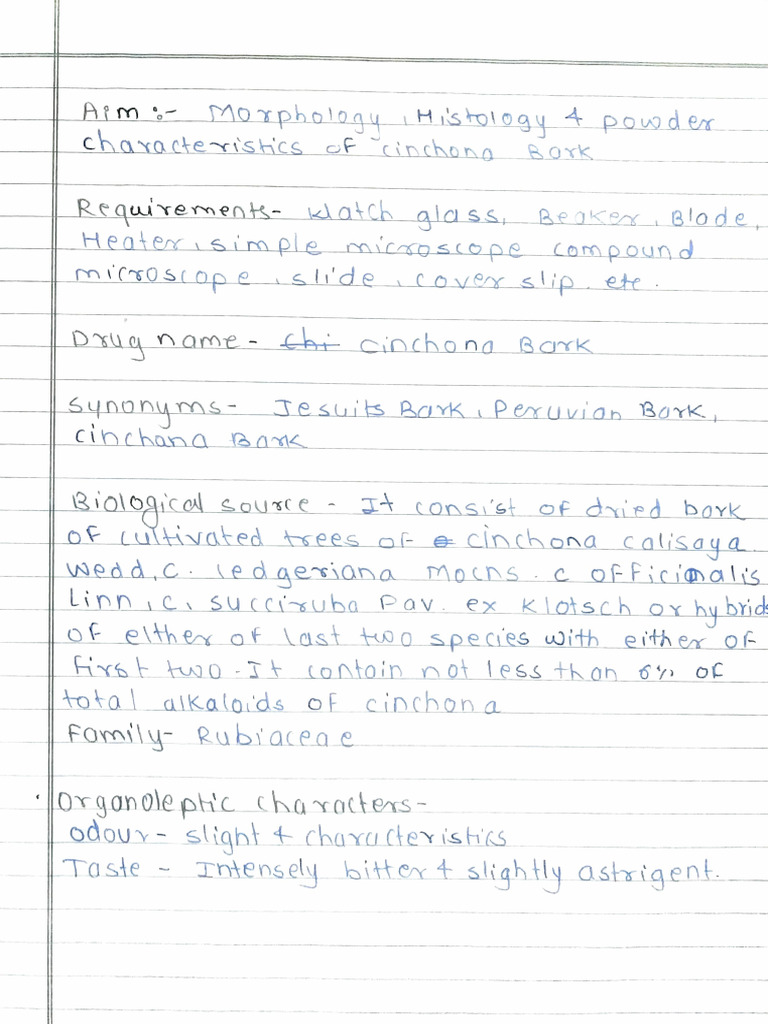 Aim :- Morphology, Histology & powder
characteristics of cinchona Bark
Requirements- Watch glass, Beaker, Blade,
Heater, simple microscope compound
microscope, slide, cover slip. etc.
Drug name - chi cinchona Bark
Synonyms- Jesuits Bark, Peruvian Bark,
cinchana Bark
Biological source - It consist of dried bark
of cultivated trees of cinchona calisaya
wedd, c. ledgeriana Mocns. c officinalis
Linn, c, succiruba Pav. ex Klotsch or hybrids
of either of last two species with either of
first two. It contain not less than 6% of
total alkaloids of cinchona
Family- Rubiaceae
. Organoleptic characters-
odour- slight & characteristics
Taste - Intensely bitter & slightly astrigent.